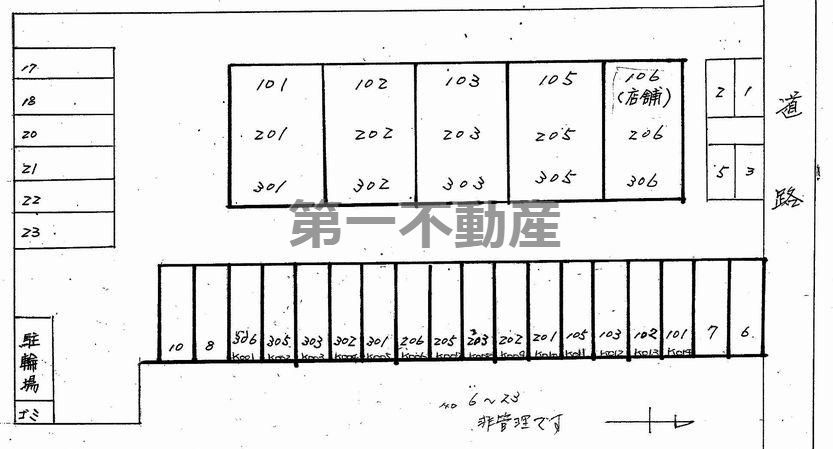 17
18
20
21
22
23
101 102 103 105 106
(店舗)
201 202 203 205 206
301 302 303 305 306
2 1
5 3
道路
第一不動産
10 8 306 305 303 302 301 206 205 203 202 201 105 103 102 101 7 6
K001 K002 K003 K004 K005 K006 K007 K008 K009 K010 K011 K012 K013 K014
駐輪場
ゴミ
no 6～23
非管理です